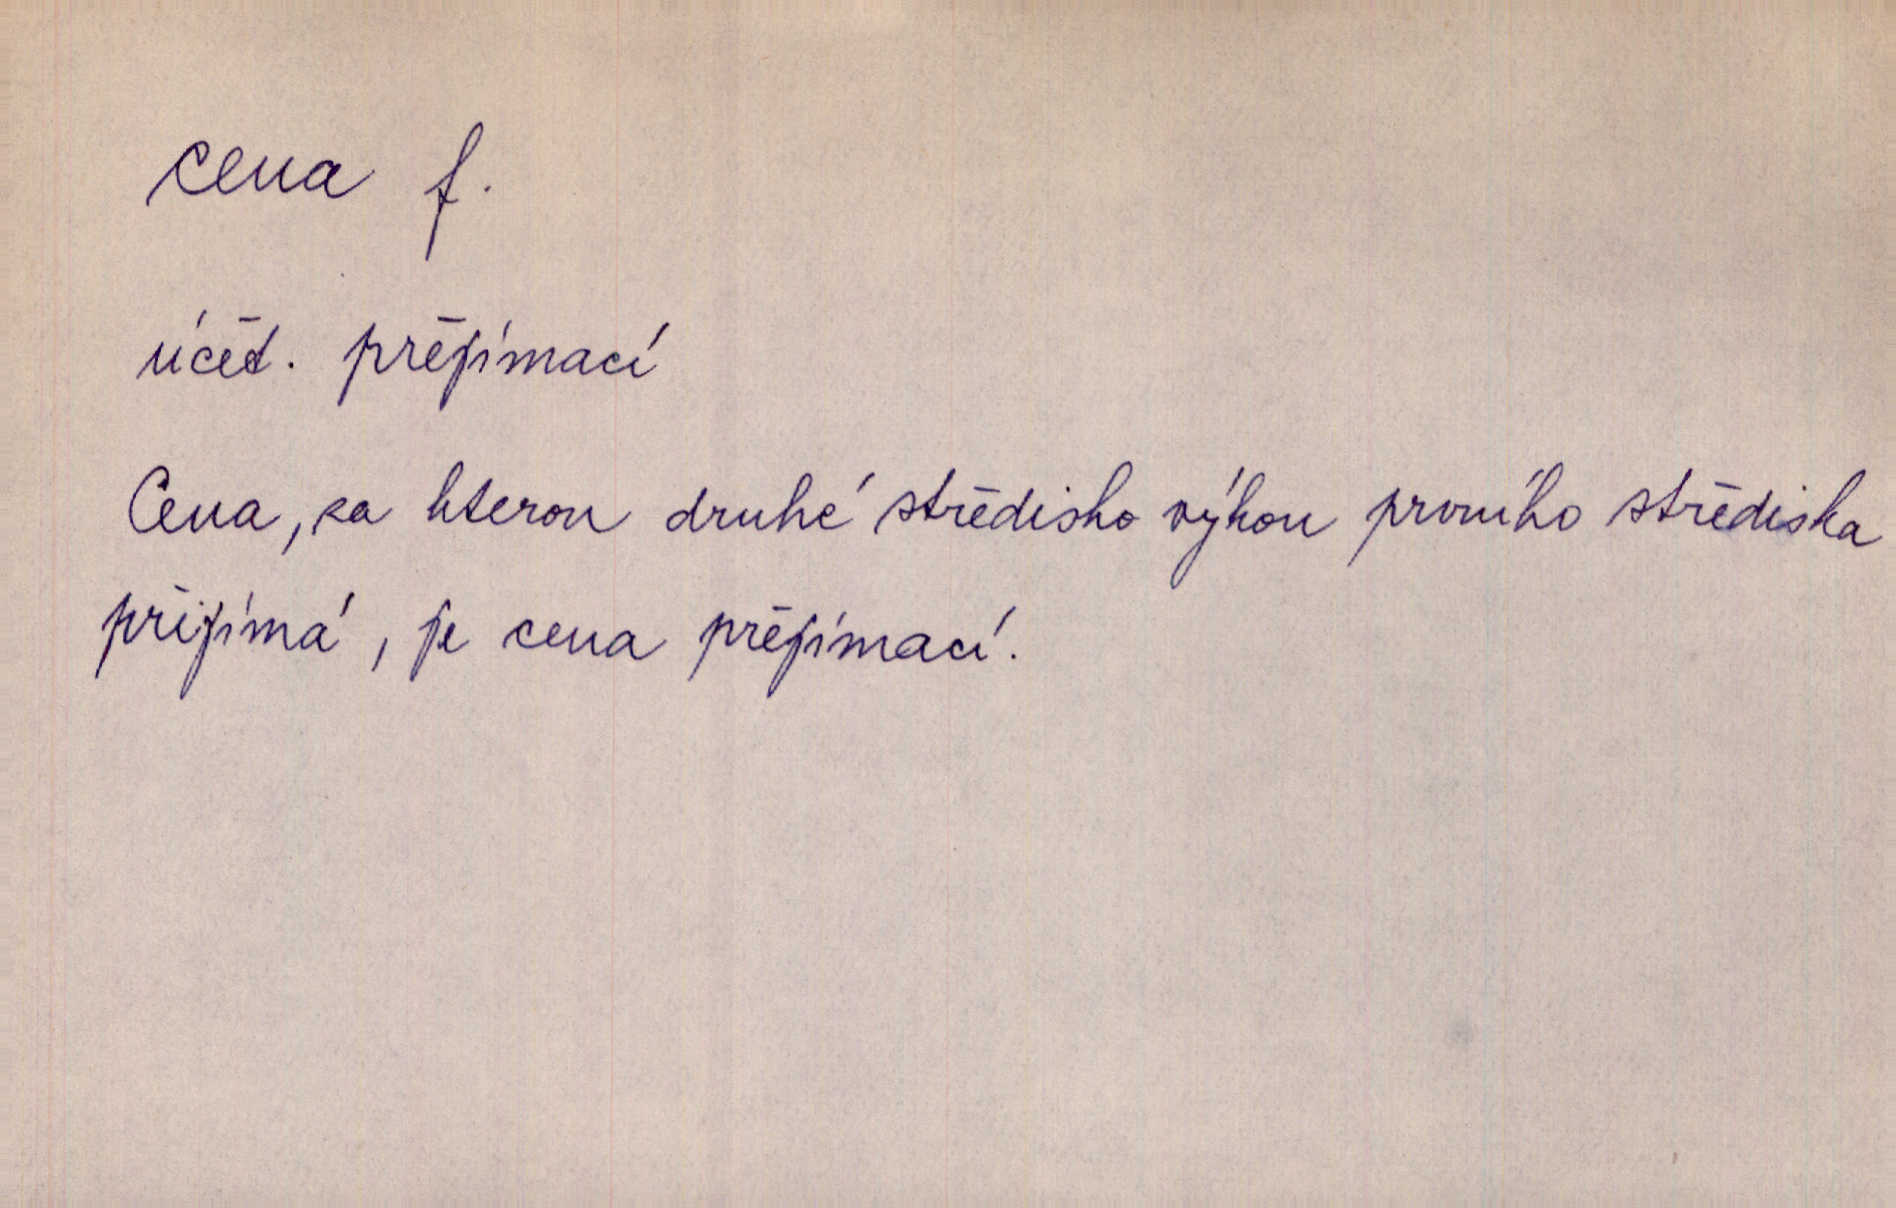 cena f.
účet. přejímací
Cena, za kterou druhé středisko výkon prvního střediska
přijímá, je cena přejímací.